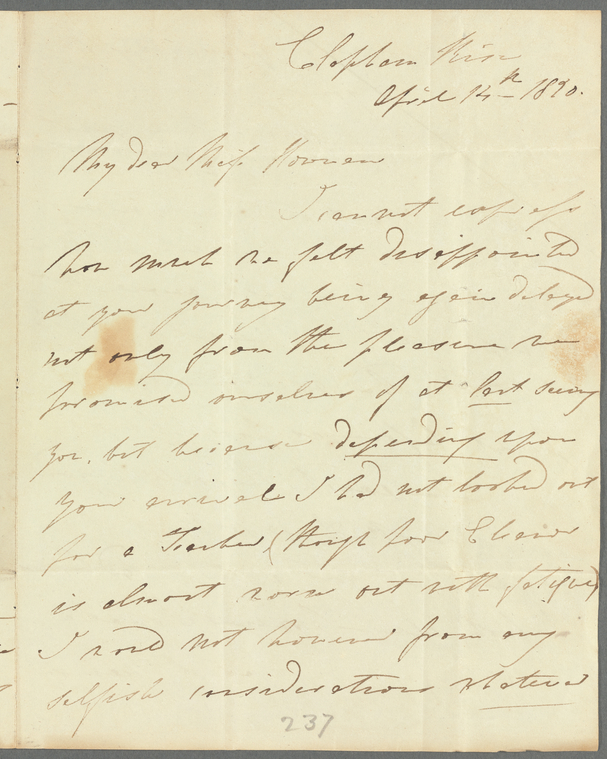 Clapham Rise
April 14th 1820.
My dear Miss
I cannot express
how much we felt disappointed
at your journey being again delayed
not only from the pleasure we
promised ourselves of at last seeing
you, but because depending upon
your arrival I had not looked out
for a Teacher (though poor Eleanor
is almost worn out with fatigue)
I would not however from any
selfish considerations whatever
237